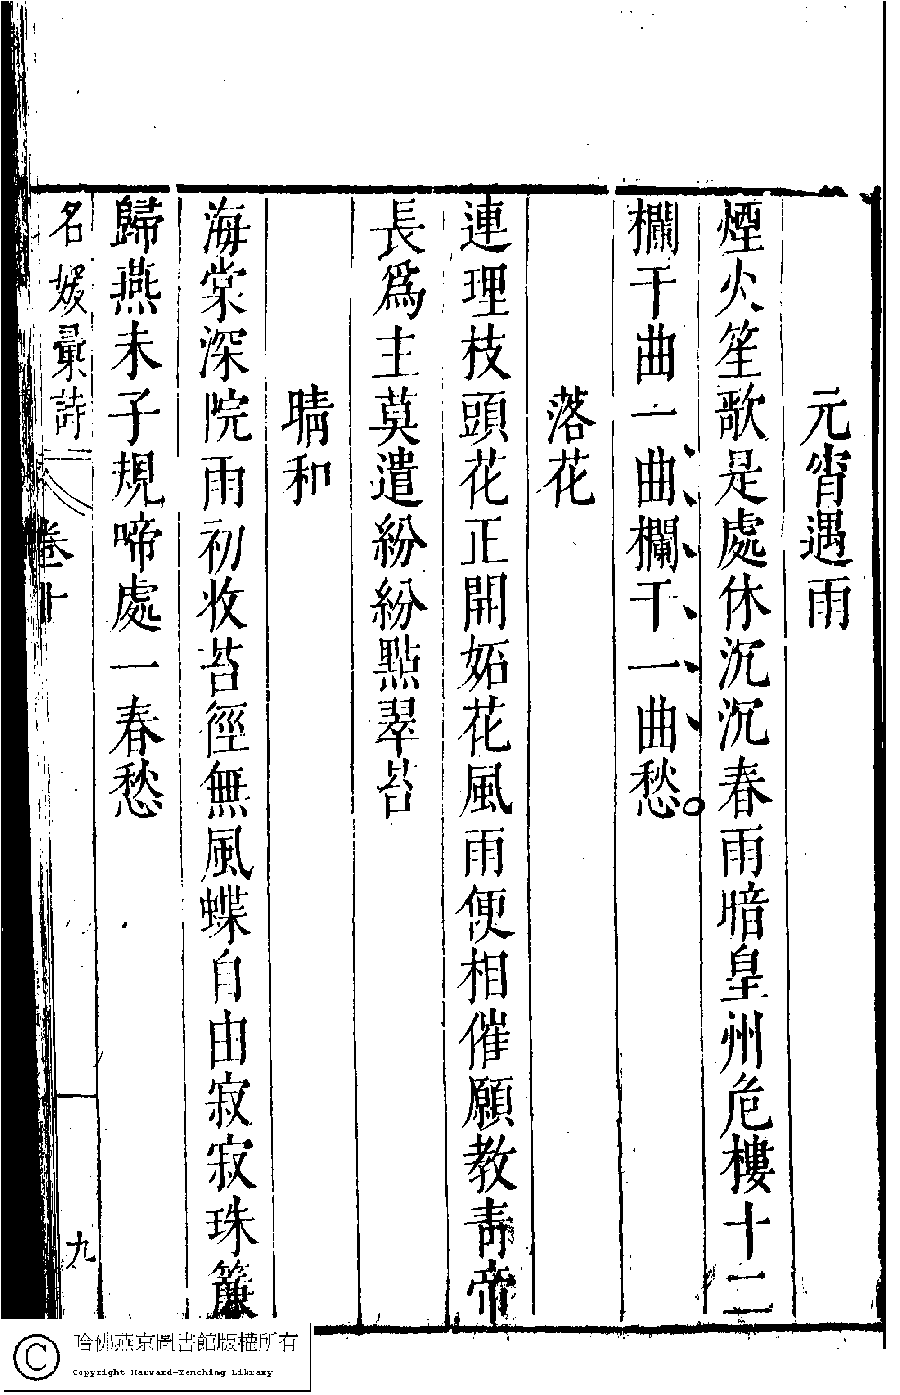 元宵遇雨
煙火笙歌是處休沉沉春雨暗皇州危樓十二
欄干曲一曲欄干一曲愁
落花
連理枝頭花正開妬花風雨便相催願教靑帝
長爲主莫遣紛紛點翠苔
晴和
海棠深院雨初收苔徑無風蝶自由寂寂珠簾
歸燕未子規啼處一春愁
名媛彙詩 卷十 九
哈佛燕京圖書館版權所有
Copyright Harvard-Yenching Library